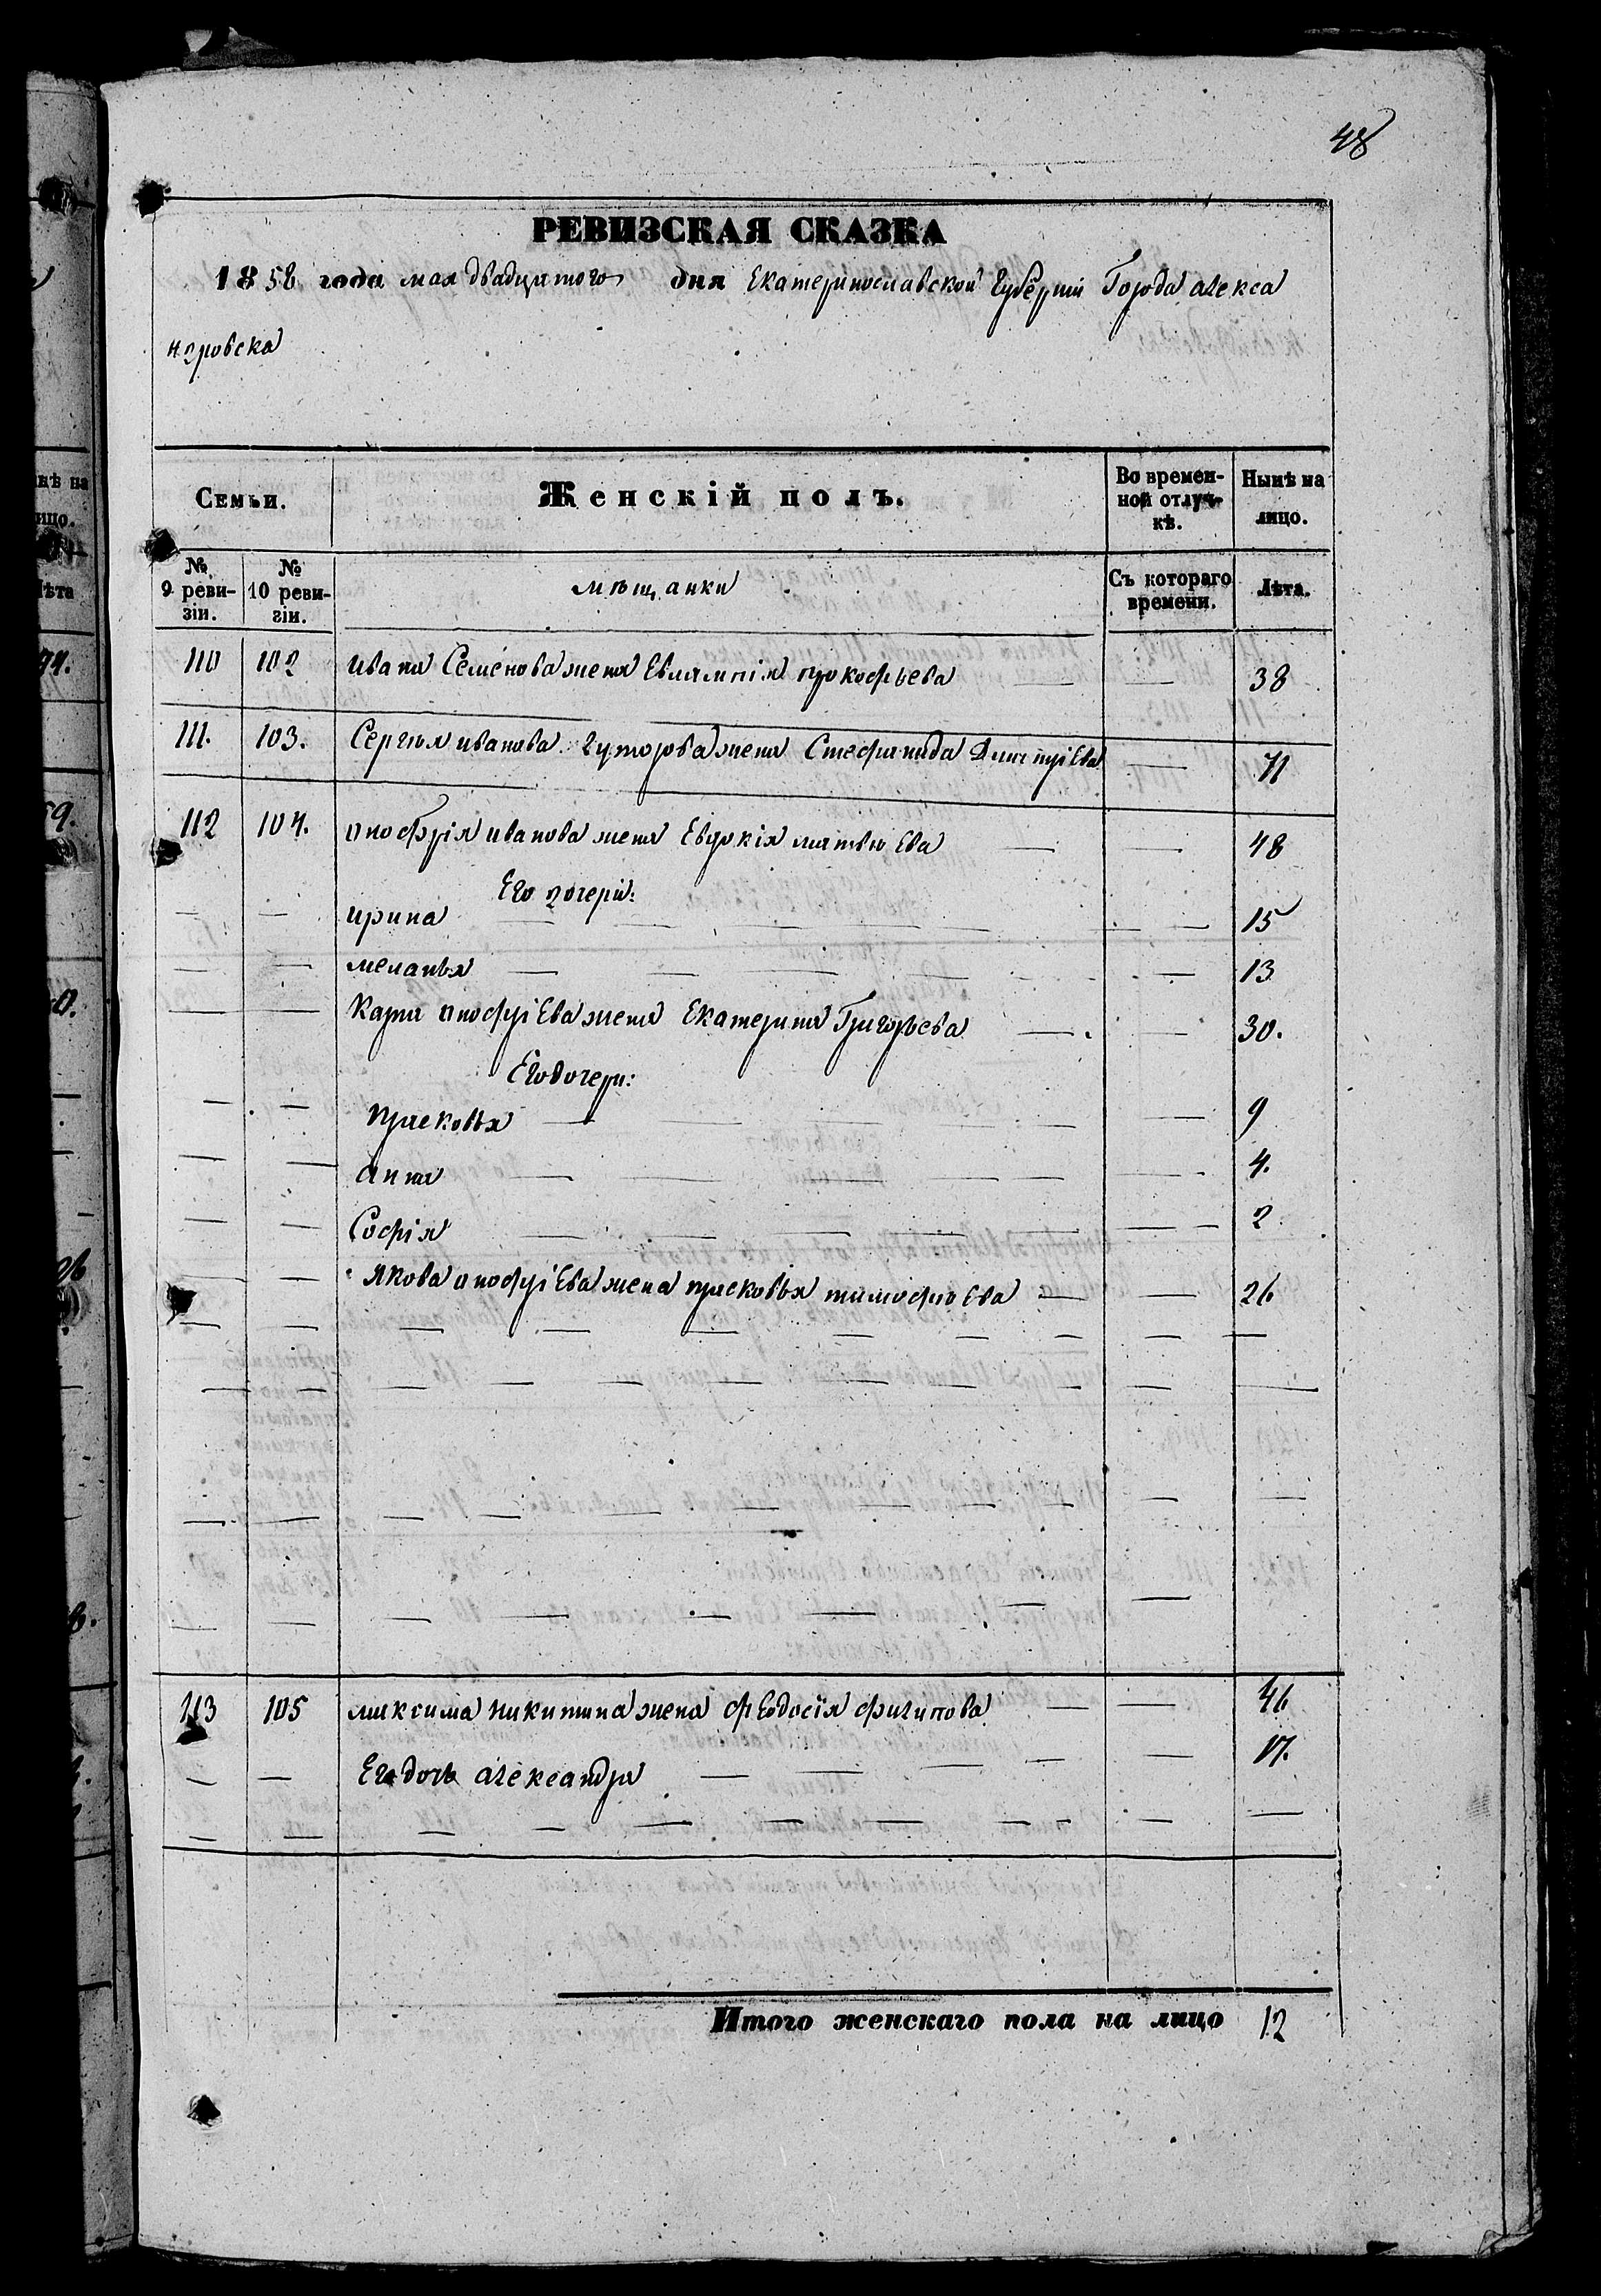 48
РЕВИЗСКАЯ СКАЗКА
1858 года мая двадцятого дня Екатеринославской Губернiи Города алекса
ндровска
Семьи. Женскій полъ. Во времен-ной отлуч-кѣ. Нынѣ на лицо.
№ 9 реви-зіи. № 10 реви-зіи. мѣщанки Съ котораго времени. Лѣта.
110 102 ивана Семенова жена Евлампія прокофьева — — 38
111. 103. Сергѣя иванова гуторова жена Стефанида Дмитріева — 71
112 104. онофрія иванова жена Евдокія матвѣева — — 48
Его дочери:
— — ирина — — — — — — 15
— — меланья — — — — — 13
— — Карпа онофріева жена Екатерина Григорьева — — 30.
Его дочери:
— — прасковья — — — — — — 9
— — анна — — — — — — 4.
— — Софія — — — — — — 2.
— — Якова онофріева жена прасковья тимофѣева — — 26
113 105 максима никитина жена феодосія филипова — — 46
— — Его дочь александра — — — — — 17.
Итого женскаго пола на лицо 12